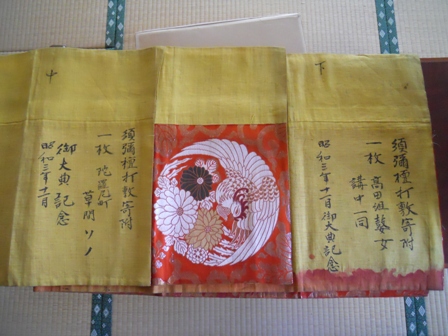 下
須彌壇打敷寄附
一枚 高田沮瞽女
講中一同
昭和三年十一月御大典記念
中
須彌壇打敷寄附
一枚 陀羅尼町
草間リノ
御大典記念
昭和三年十一月